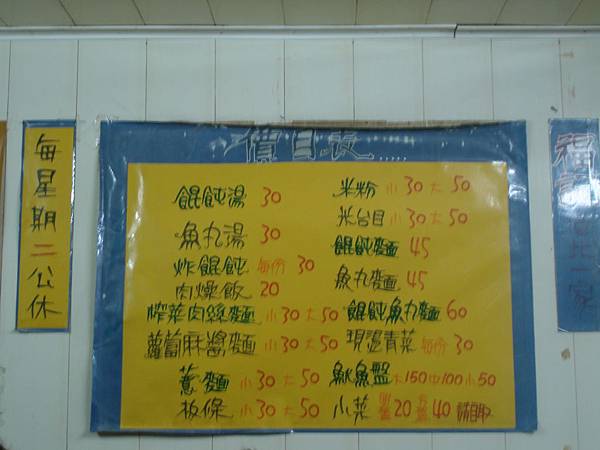 每星期二公休
價目表
餛飩湯 30
魚丸湯 30
炸餛飩 每份 30
肉燥飯 20
榨菜肉絲麵 小30大50
蘿蔔麻醬麵 小30大50
蔥麵 小30大50
板條 小30大50
米粉 小30大50
米台目 小30大50
餛飩麵 45
魚丸麵 45
餛飩魚丸麵 60
現燙青菜 每份30
魷魚盤 大150中100小50
小菜 20 40 請自取
福
一家